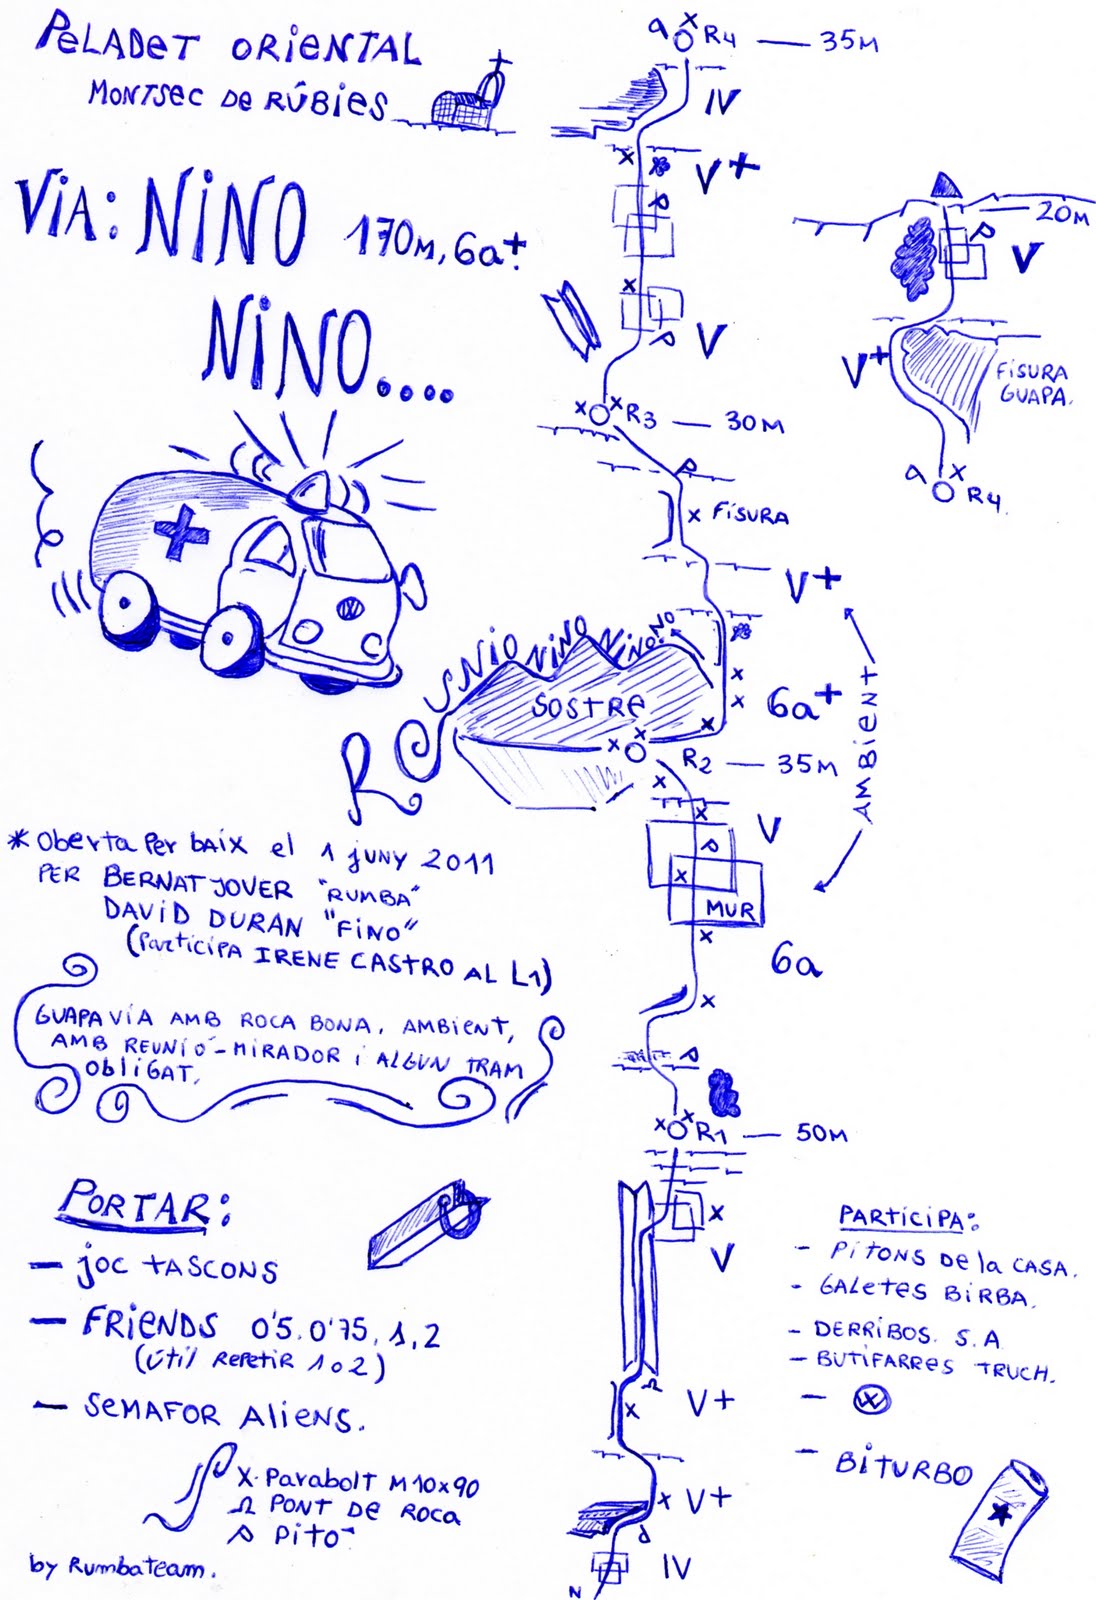 PELADET ORIENTAL
MONTSEC DE RÚBIES
VIA: NINO 170M, 6a+.
NINO....
* Oberta Per baix el 1 juny 2011
PER BERNAT JOVER "RUMBA"
DAVID DURAN "FINO"
(Participa IRENE CASTRO AL L1)
GUAPA VIA AMB ROCA BONA, AMBIENT,
AMB REUNIÓ-MIRADOR i ALGUN TRAM
Obligat.
PORTAR:
- joc TASCONS
- FRIENDS 0'5, 0'75, 1, 2
(útil REPETIR 1 o 2)
- SEMAFOR Aliens.
X- Parabolt M10x90
Ω PONT DE ROCA
PITÓ
by Rumbateam.
a R4 — 35M
IV
V+
V
R3 — 30M
FISURA
V+
NIO NINO NINO. NO
SOSTRE
6a+
R
R2 — 35M
AMBIENT
V
MUR
6a
R1 — 50M
V
Ω
V+
V+
IV
N
20M
V
V+
FISURA
GUAPA.
a R4.
PARTICIPA:
- PITONS DE la CASA.
- GALETES BIRBA.
- DERRIBOS. S.A
- BUTIFARRES TRUCH.
- VW
- BITURBO